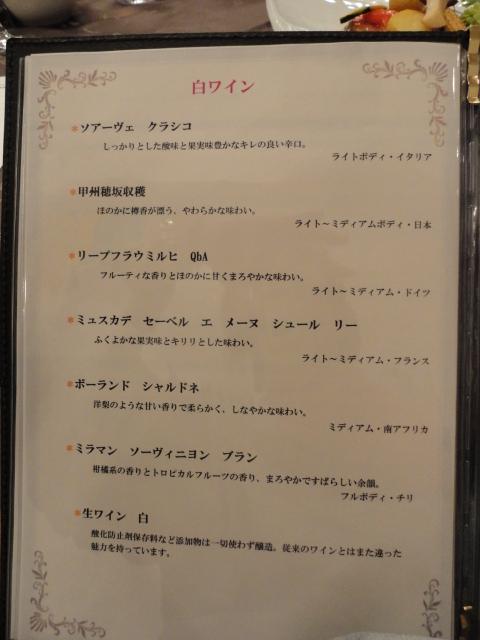 白ワイン
*ソアーヴェ クラシコ
しっかりとした酸味と果実味豊かなキレの良い辛口。
ライトボディ・イタリア
*甲州穂坂収穫
ほのかに樽香が漂う、やわらかな味わい。
ライト～ミディアムボディ・日本
*リープフラウミルヒ QbA
フルーティな香りとほのかに甘くまろやかな味わい。
ライト～ミディアム・ドイツ
*ミュスカデ セーベル エ メーヌ シュール リー
ふくよかな果実味とキリリとした味わい。
ライト～ミディアム・フランス
*ボーランド シャルドネ
洋梨のような甘い香りで柔らかく、しなやかな味わい。
ミディアム・南アフリカ
*ミラマン ソーヴィニヨン ブラン
柑橘系の香りとトロピカルフルーツの香り、まろやかですばらしい余韻。
フルボディ・チリ
*生ワイン 白
酸化防止剤保存料など添加物は一切使わず醸造。従来のワインとはまた違った
魅力を持っています。